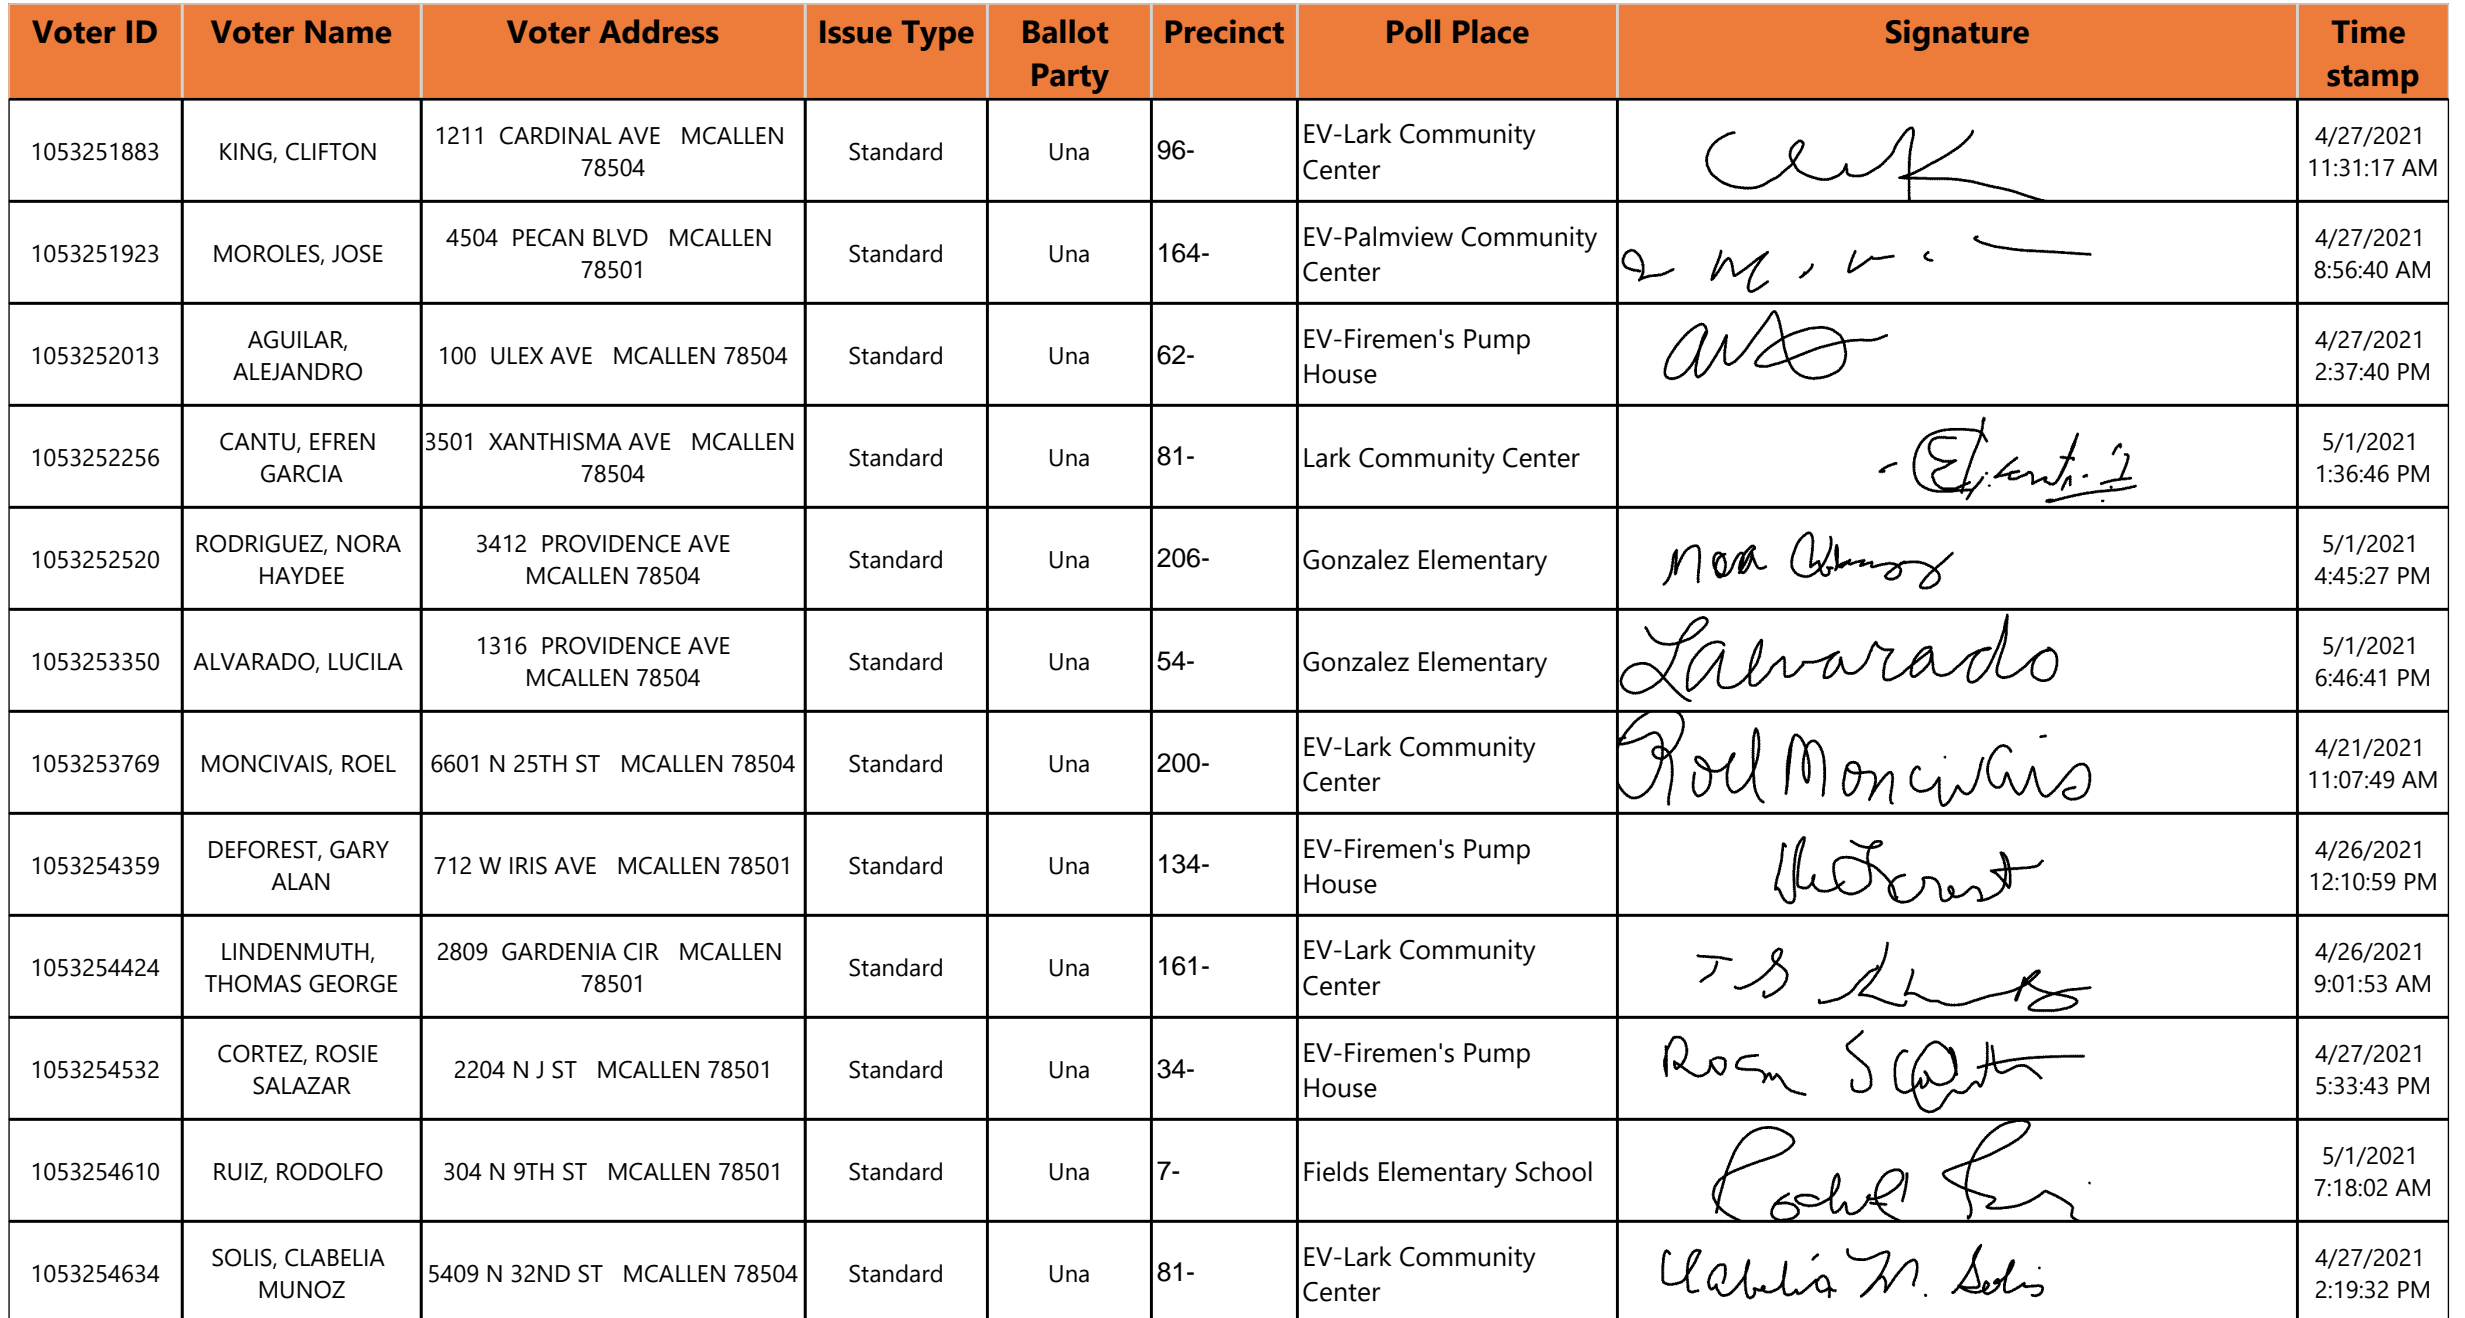 Voter ID Voter Name Voter Address Issue Type Ballot Party Precinct Poll Place Signature Time stamp
1053251883 KING, CLIFTON 1211 CARDINAL AVE MCALLEN 78504 Standard Una 96- EV-Lark Community Center 4/27/2021 11:31:17 AM
1053251923 MOROLES, JOSE 4504 PECAN BLVD MCALLEN 78501 Standard Una 164- EV-Palmview Community Center 4/27/2021 8:56:40 AM
1053252013 AGUILAR, ALEJANDRO 100 ULEX AVE MCALLEN 78504 Standard Una 62- EV-Firemen's Pump House 4/27/2021 2:37:40 PM
1053252256 CANTU, EFREN GARCIA 3501 XANTHISMA AVE MCALLEN 78504 Standard Una 81- Lark Community Center 5/1/2021 1:36:46 PM
1053252520 RODRIGUEZ, NORA HAYDEE 3412 PROVIDENCE AVE MCALLEN 78504 Standard Una 206- Gonzalez Elementary Nora 5/1/2021 4:45:27 PM
1053253350 ALVARADO, LUCILA 1316 PROVIDENCE AVE MCALLEN 78504 Standard Una 54- Gonzalez Elementary LAlvarado 5/1/2021 6:46:41 PM
1053253769 MONCIVAIS, ROEL 6601 N 25TH ST MCALLEN 78504 Standard Una 200- EV-Lark Community Center Roel Moncivais 4/21/2021 11:07:49 AM
1053254359 DEFOREST, GARY ALAN 712 W IRIS AVE MCALLEN 78501 Standard Una 134- EV-Firemen's Pump House DeForest 4/26/2021 12:10:59 PM
1053254424 LINDENMUTH, THOMAS GEORGE 2809 GARDENIA CIR MCALLEN 78501 Standard Una 161- EV-Lark Community Center 4/26/2021 9:01:53 AM
1053254532 CORTEZ, ROSIE SALAZAR 2204 N J ST MCALLEN 78501 Standard Una 34- EV-Firemen's Pump House 4/27/2021 5:33:43 PM
1053254610 RUIZ, RODOLFO 304 N 9TH ST MCALLEN 78501 Standard Una 7- Fields Elementary School 5/1/2021 7:18:02 AM
1053254634 SOLIS, CLABELIA MUNOZ 5409 N 32ND ST MCALLEN 78504 Standard Una 81- EV-Lark Community Center Clabelia M. Solis 4/27/2021 2:19:32 PM